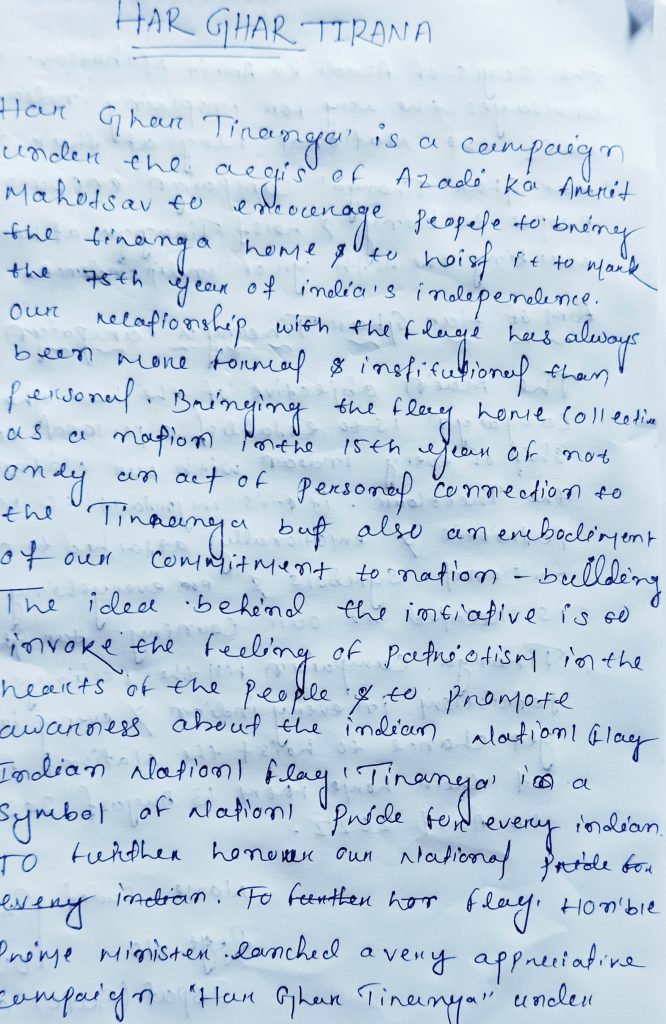 HAR GHAR TIRANA
Har Ghar Tiranga' is a campaign
under the aegis of Azadi Ka Amrit
Mahotsav to encourage peopele to bring
the tiranga home & to hoist it to mark
the 75th year of india's independence.
our relationship with the flage has always
been more formal & institutional than
personal. Bringing the flag home collective
as a nation in the 15th year of not
only an act of personal connection to
the Tiranga but also an embodiment
of our commitment to nation - building
The idea behind the intiative is to
invoke the feeling of patriotism in the
hearts of the people & to promote
awarness about the indian Nationl flag
Indian Nationl flag 'Tiranga' is a
symbol of Nationl pride for every indian.
To further honour our National pride for
every indian. To further hor flag. Hon'ble
Prime Minister lanched a very appreciative
campaign "Har Ghar Tiranga" under